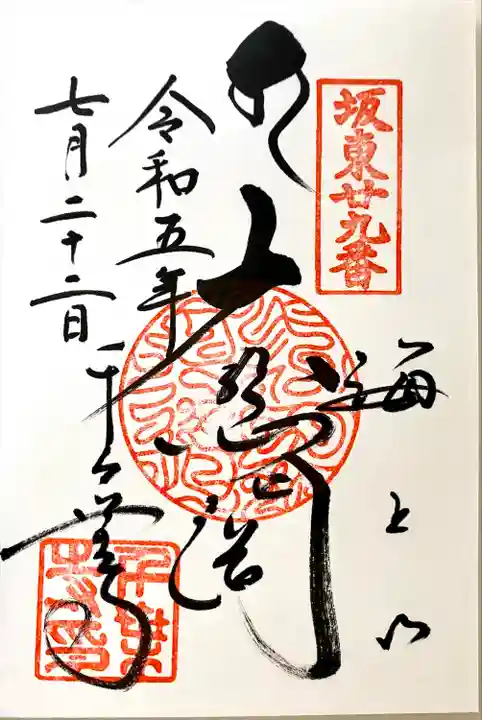 坂東廿九番
海上山
大悲閣
令和五年
七月二十二日
千葉寺